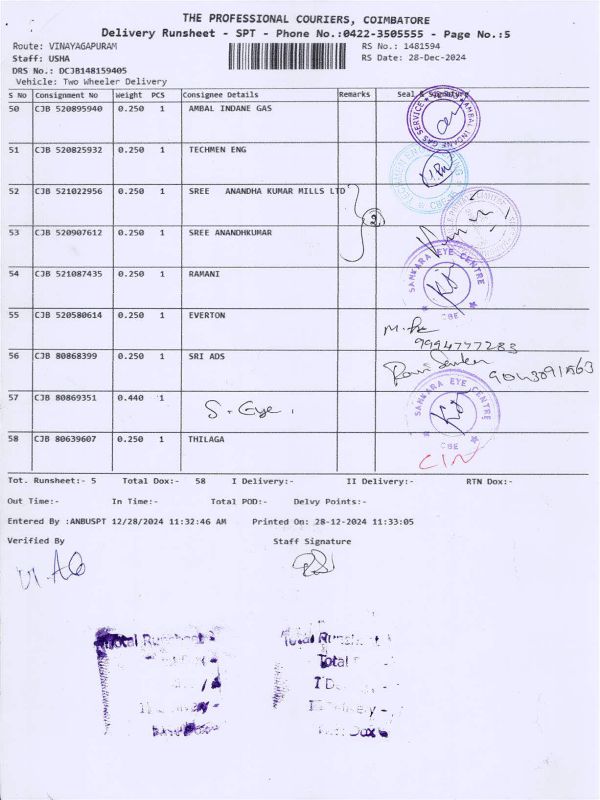 THE PROFESSIONAL COURIERS, COIMBATORE
Delivery Runsheet - SPT - Phone No.:0422-3505555 - Page No.:5
Route: VINAYAGAPURAM RS No.: 1481594
Staff: USHA RS Date: 28-Dec-2024
DRS No.: DCJB148159405
Vehicle: Two Wheeler Delivery
S No Consignment No Weight PCS Consignee Details Remarks Seal & Signature
50 CJB 520895940 0.250 1 AMBAL INDANE GAS
AMBAL INDANE GAS SERVICE
51 CJB 520825932 0.250 1 TECHMEN ENG
52 CJB 521022956 0.250 1 SREE ANANDHA KUMAR MILLS LTD
2
53 CJB 520907612 0.250 1 SREE ANANDHKUMAR
54 CJB 521087435 0.250 1 RAMANI
SANKARA EYE CENTRE
CBE
55 CJB 520580614 0.250 1 EVERTON
9994777283
56 CJB 80868399 0.250 1 SRI ADS
57 CJB 80869351 0.440 1 S. Eye.
SANKARA EYE CENTRE
CBE
58 CJB 80639607 0.250 1 THILAGA
Tot. Runsheet:- 5 Total Dox:- 58 I Delivery:- II Delivery:- RTN Dox:-
Out Time:- In Time:- Total POD:- Delvy Points:-
Entered By :ANBUSPT 12/28/2024 11:32:46 AM Printed On: 28-12-2024 11:33:05
Verified By Staff Signature
Total Runsheet Total Runsheet
Total